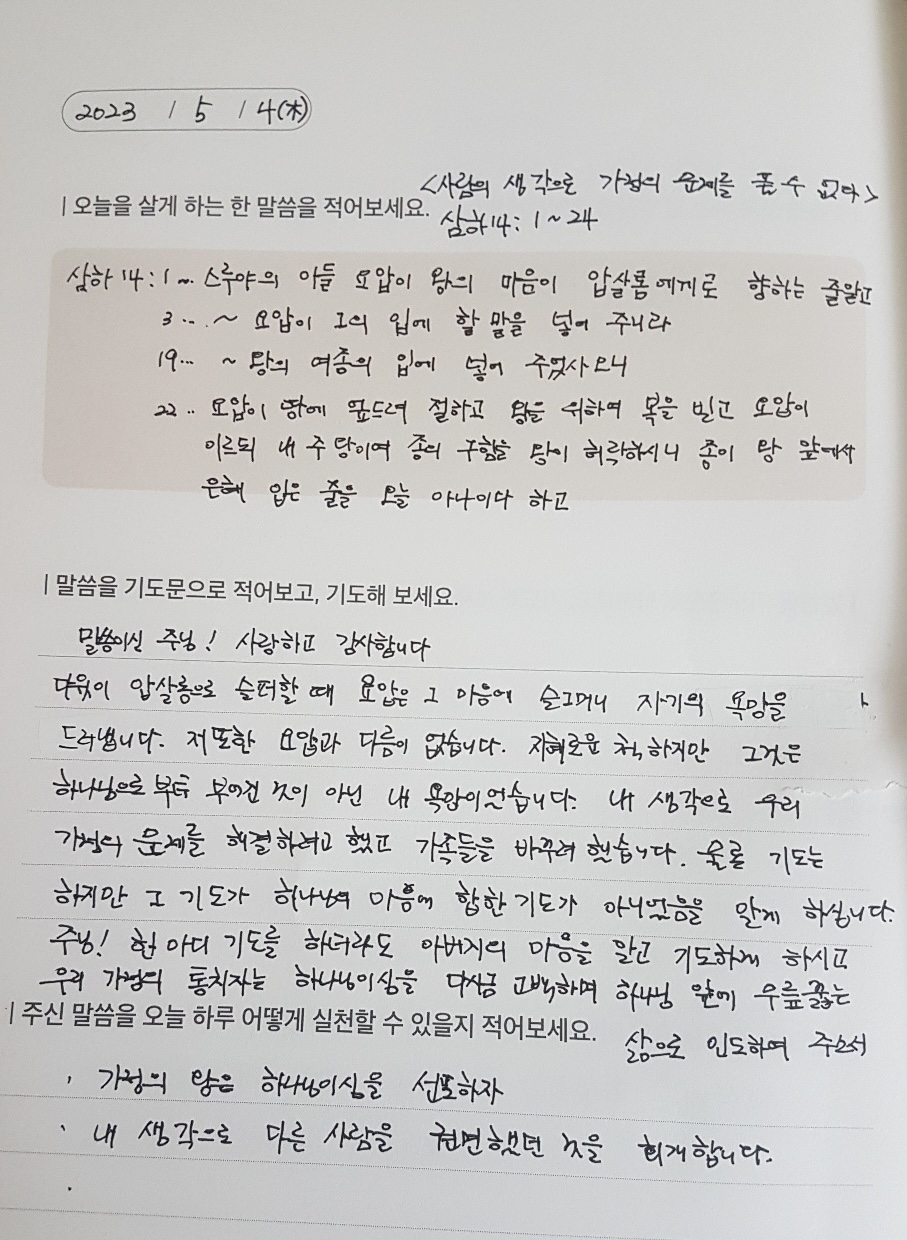 2023 / 5 / 4(木)
<사람의 생각으로 가정의 문제를 풀 수 없다>
| 오늘을 살게 하는 한 말씀을 적어보세요.
삼하14: 1~24
삼하 14:1~ 스루야의 아들 요압이 왕의 마음이 압살롬에게로 향하는 줄알고
3... ~ 요압이 그의 입에 할 말을 넣어 주니라
19... ~ 왕의 여종의 입에 넣어 주었사오니
22.. 요압이 땅에 엎드려 절하고 왕을 위하여 복을 빌고 요압이
이르되 내 주 왕이여 종의 구함을 왕이 허락하시니 종이 왕 앞에서
은혜 입은 줄을 오늘 아나이다 하고
| 말씀을 기도문으로 적어보고, 기도해 보세요.
말씀이신 주님! 사랑하고 감사합니다
다윗이 압살롬으로 슬퍼할 때 요압은 그 마음에 슬그머니 자기의 욕망을
드러냅니다. 저또한 요압과 다름이 없습니다. 지혜로운 척 하지만 그것은
하나님으로 부터 부어진 것이 아닌 내 욕망이었습니다. 내 생각으로 우리
가정의 문제를 해결하려고 했고 가족들을 바꾸려 했습니다. 물론 기도는
하지만 그 기도가 하나님의 마음에 합한 기도가 아니었음을 알게 하십니다.
주님! 한 마디 기도를 하더라도 아버지의 마음을 알고 기도하게 하시고
우리 가정의 통치자는 하나님이심을 다시금 고백하며 하나님 앞에 무릎 꿇는
삶으로 인도하여 주소서
| 주신 말씀을 오늘 하루 어떻게 실천할 수 있을지 적어보세요.
· 가정의 왕은 하나님이심을 선포하자
· 내 생각으로 다른 사람을 권면했던 것을 회개합니다.